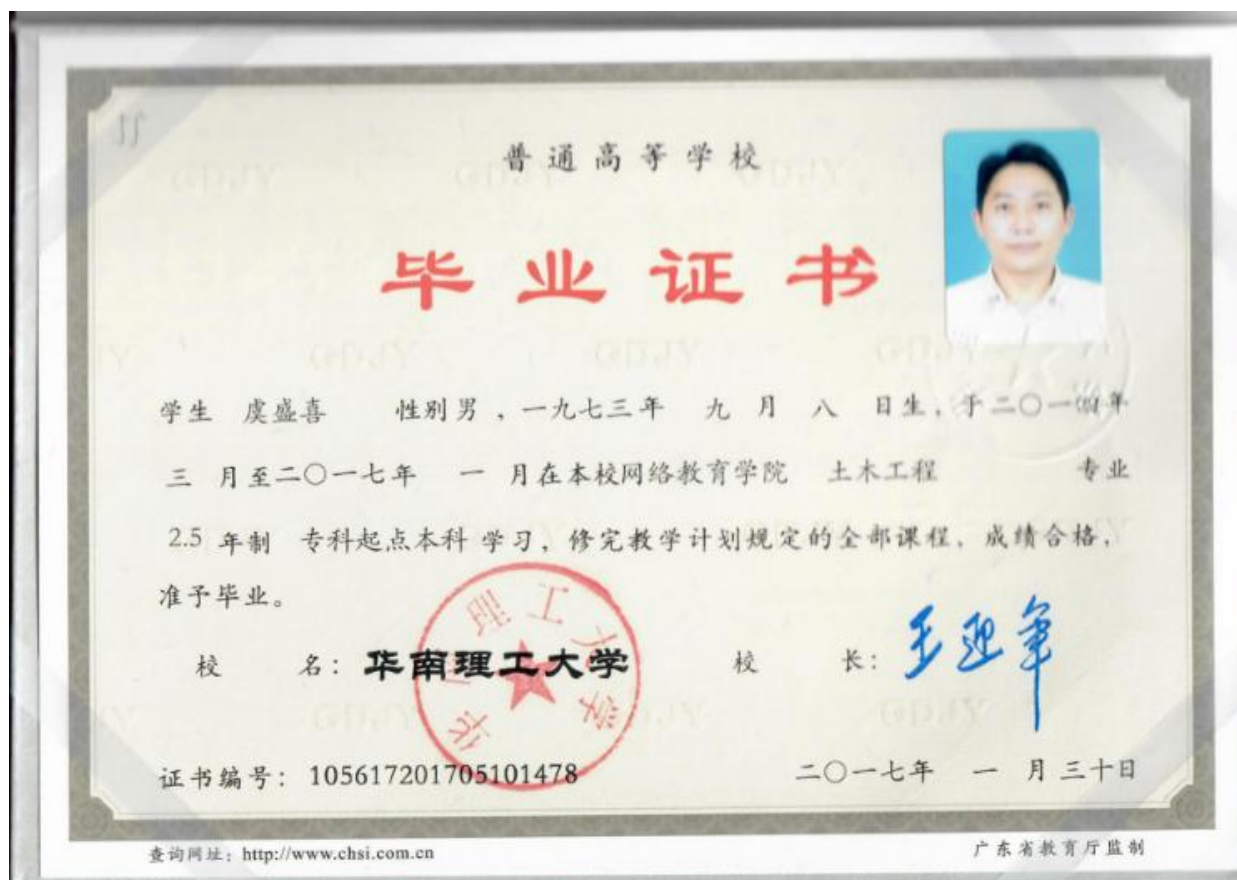 普通高等学校
毕业证书
学生 虞盛喜 性别男，一九七三年 九 月 八 日生，于二〇一四年
三 月至二〇一七年 一 月在本校网络教育学院 土木工程 专业
2.5 年制 专科起点本科 学习，修完教学计划规定的全部课程，成绩合格，
准予毕业。
校 名：华南理工大学 校 长：王迎军
华南理工大学
证书编号：105617201705101478 二〇一七年 一 月 三十日
查询网址：http://www.chsi.com.cn 广东省教育厅监制
GDJY GDJY GDJY
GDJY GDJY GDJY
GDJY GDJY GDJY